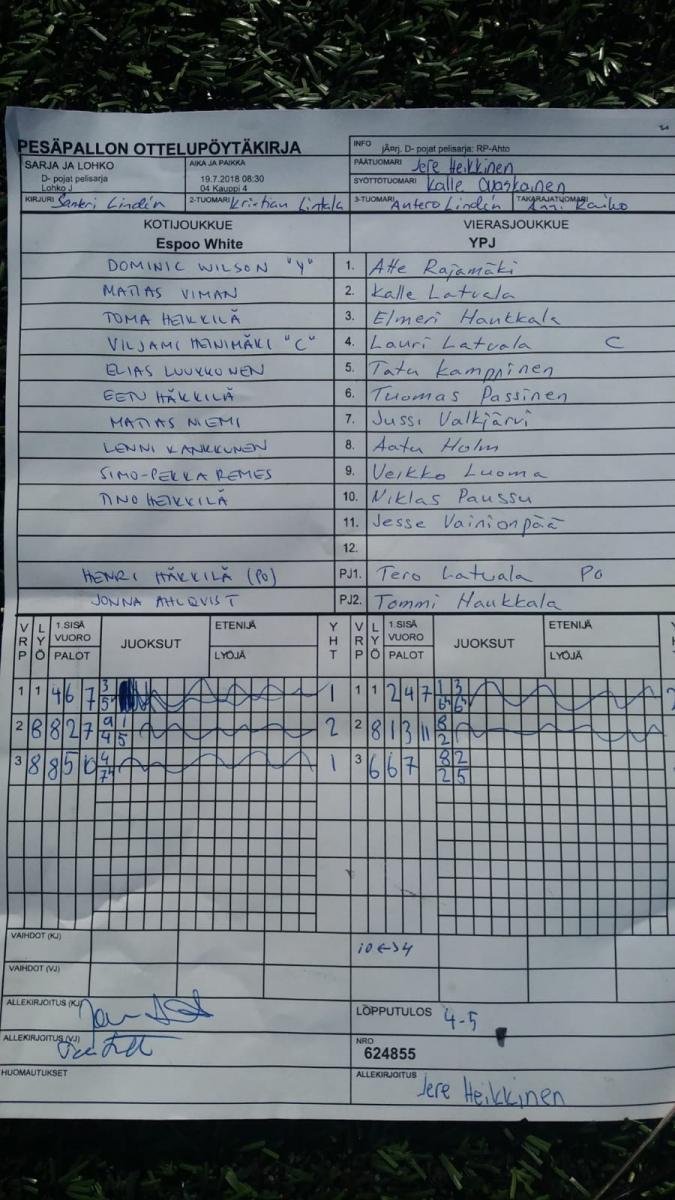 PESÄPALLON OTTELUPÖYTÄKIRJA
INFO jÄnrj. D- pojat pelisarja: RP-Ahto
SARJA JA LOHKO
D- pojat pelisarja
Lohko J
AIKA JA PAIKKA
19.7.2018 08:30
04 Kauppi 4
PÄÄTUOMARI Jere Heikkinen
SYÖTTÖTUOMARI Kalle
KIRJURI Santeri Lindén 2-TUOMARI Kristian Lintala 3-TUOMARI Antero Lindén TAKARAJATUOMARI Anni Raiko
KOTIJOUKKUE
Espoo White
VIERASJOUKKUE
YPJ
DOMINIC WILSON "Y" 1. Atte Rajamäki
MATIAS VIMAN 2. Kalle Latvala
TOMA HEIKKILÄ 3. Elmeri Haukkala
VILJAMI HEINIMÄKI "C" 4. Lauri Latvala C
ELIAS LUUKKONEN 5. Tatu Kamppinen
EETU HÄKKILÄ 6. Tuomas Passinen
MATIAS NIEMI 7. Jussi Valkjärvi
LENNI KANKKUNEN 8. Aatu Holm
SIMO-PEKKA REMES 9. Veikko Luoma
TINO HEIKKILÄ 10. Niklas Paussu
11. Jesse Vainionpää
12.
HENRI HÄKKILÄ (PO) PJ1. Tero Latvala PO
JONNA AHLQVIST PJ2. Tommi Haukkala
VRP LYÖ 1.SISÄ VUORO PALOT JUOKSUT ETENIJÄ LYÖJÄ YHT VRP LYÖ 1.SISÄ VUORO PALOT JUOKSUT ETENIJÄ LYÖJÄ
1 1 4 6 7 3 5 1 1 1 2 4 7 1 3 6 6
2 8 8 2 7 9 1 4 5 2 2 8 1 3 11 8 2
3 8 8 5 10 4 7 1 3 6 6 7 8 2 2 5
VAIHDOT (KJ) 10<->4
VAIHDOT (VJ)
ALLEKIRJOITUS (KJ)
LOPPUTULOS 4-5
ALLEKIRJOITUS (VJ)
NRO
624855
HUOMAUTUKSET
ALLEKIRJOITUS Jere Heikkinen